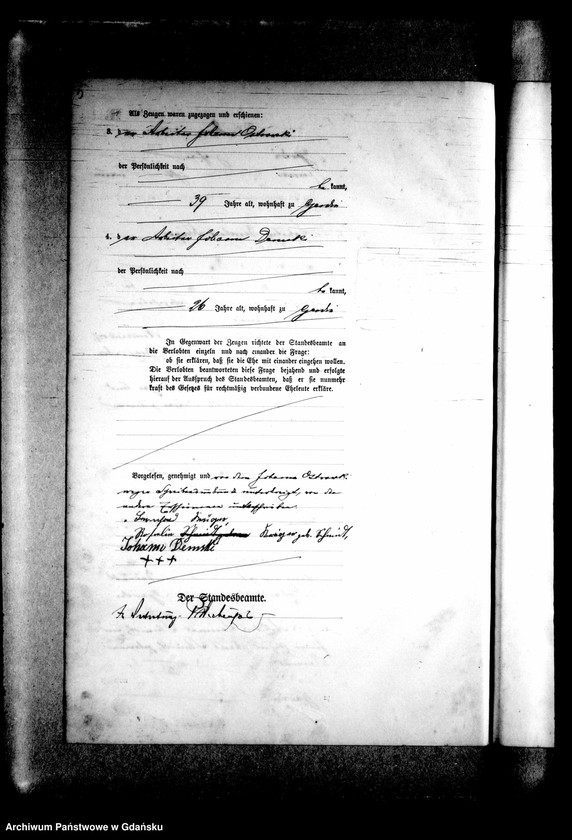 Als Zeugen waren zugezogen und erschienen:
3. der Arbeiter Johann Ostrowski
der Persönlichkeit nach
be kannt,
39 Jahre alt, wohnhaft zu
4. der Arbeiter Johann Demski
der Persönlichkeit nach
be kannt,
26 Jahre alt, wohnhaft zu
In Gegenwart der Zeugen richtete der Standesbeamte an
die Verlobten einzeln und nach einander die Frage:
ob sie erklären, daß sie die Ehe mit einander eingehen wollen.
Die Verlobten beantworteten diese Frage bejahend und erfolgte
hierauf der Ausspruch des Standesbeamten, daß er sie nunmehr
kraft des Gesetzes für rechtmäßig verbundene Eheleute erkläre.
Vorgelesen, genehmigt und von dem Johann Ostrowski
wegen unterkreuzt, von den
unterschrieben
Krüger,
Rosalie Krüger geb. Schmidt,
Johann Demski
+++
Der Standesbeamte.
In Vertretung
Archiwum Państwowe w Gdańsku